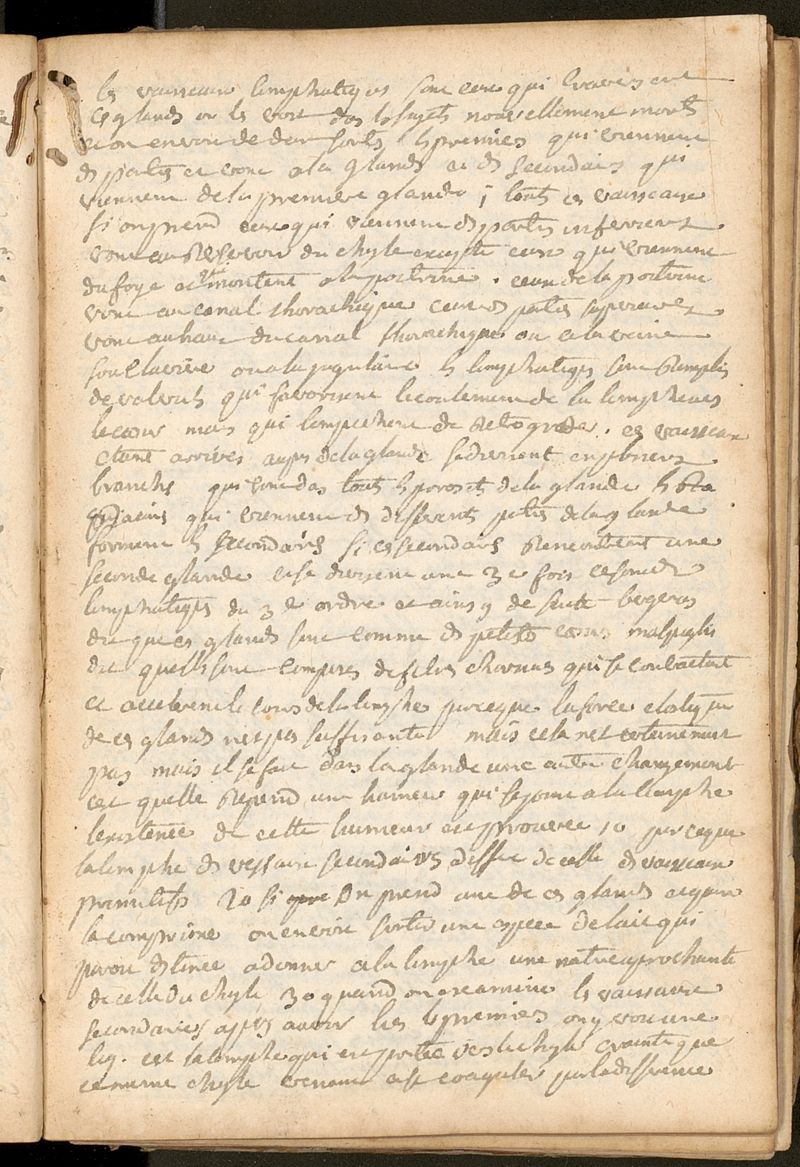 les vaisseaux limphatiques sont ceux qui traversent
les glandes on les voit dans les sujets nouvellement morts
et on en voit de deux sortes les premiers qui viennent
des parties et vont a la glande et des secondaires qui
viennent de la premiere glande ; touts ces vaisseaux
si on prend ceux qui viennent des parties inferieures
vont au reservoir du chyle excepté ceux qui viennent
du foye et montent a la poitrine . ceux de la poitrine
vont au canal thorachique ceux des parties superieures
vont au haut du canal thorachique ou a la veine
souclaviere ou a la jugulaire les limphatiques sont remplis
de valvules qui favorisent lecoulement de la limphe vers
le coeur mais qui lempechent de retrograder . ces vaisseaux
etant arrivés aupres de la glande se divisent en plusieurs
branches qui vont dans touts les porosités de la glande les
qui viennent des differents parties de la glande
forment les secondaires si ces secondaires rencontrent une
seconde glande et se divisent une 3e fois ce sont des
limphatiques du 3e ordre et ainsy de suite bergerus
dit que ces glandes sont comme des petits coeurs malpighi
dit quelles sont composes de fibres charnues qui se contractent
et accelerent le cours de la limphe parceque la force elastique
de ces glandes nest pas suffisante mais cela nest certainement
pas mais il se fait dans la glande une autre changement
cest quelle repend une humeur qui se joint a la limphe
lexistence de cette humeur est prouvée 1o parceque
la limphe des vesseaux secondaires differe de celle des vaisseaux
primitifs 2o si on prend une de ces glandes et quon
la comprime on en voit sortir une espece de lait qui
paroit destinée a donner a la limphe une nature aprochante
de celle du chyle 3o quand on examine les vaisseaux
secondaires apres avoir liés les premiers on y voit une
liq . cest la limphe qui est portée vers le chyle crainte que
ce meme chyle venant a se coaguler par la difference